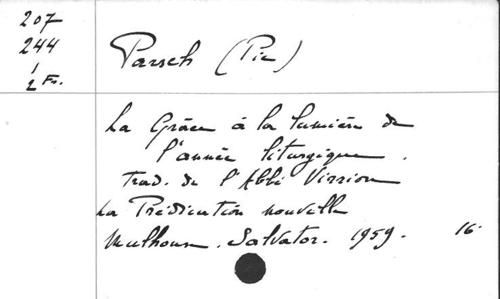 207
244
1
2 Fr.
Parsch (Pie)
La Grâce à la lumière de
l'année liturgique.
Trad. de l'Abbé Virrion
La Prédication nouvelle
Mulhouse. Salvator. 1959. 16°